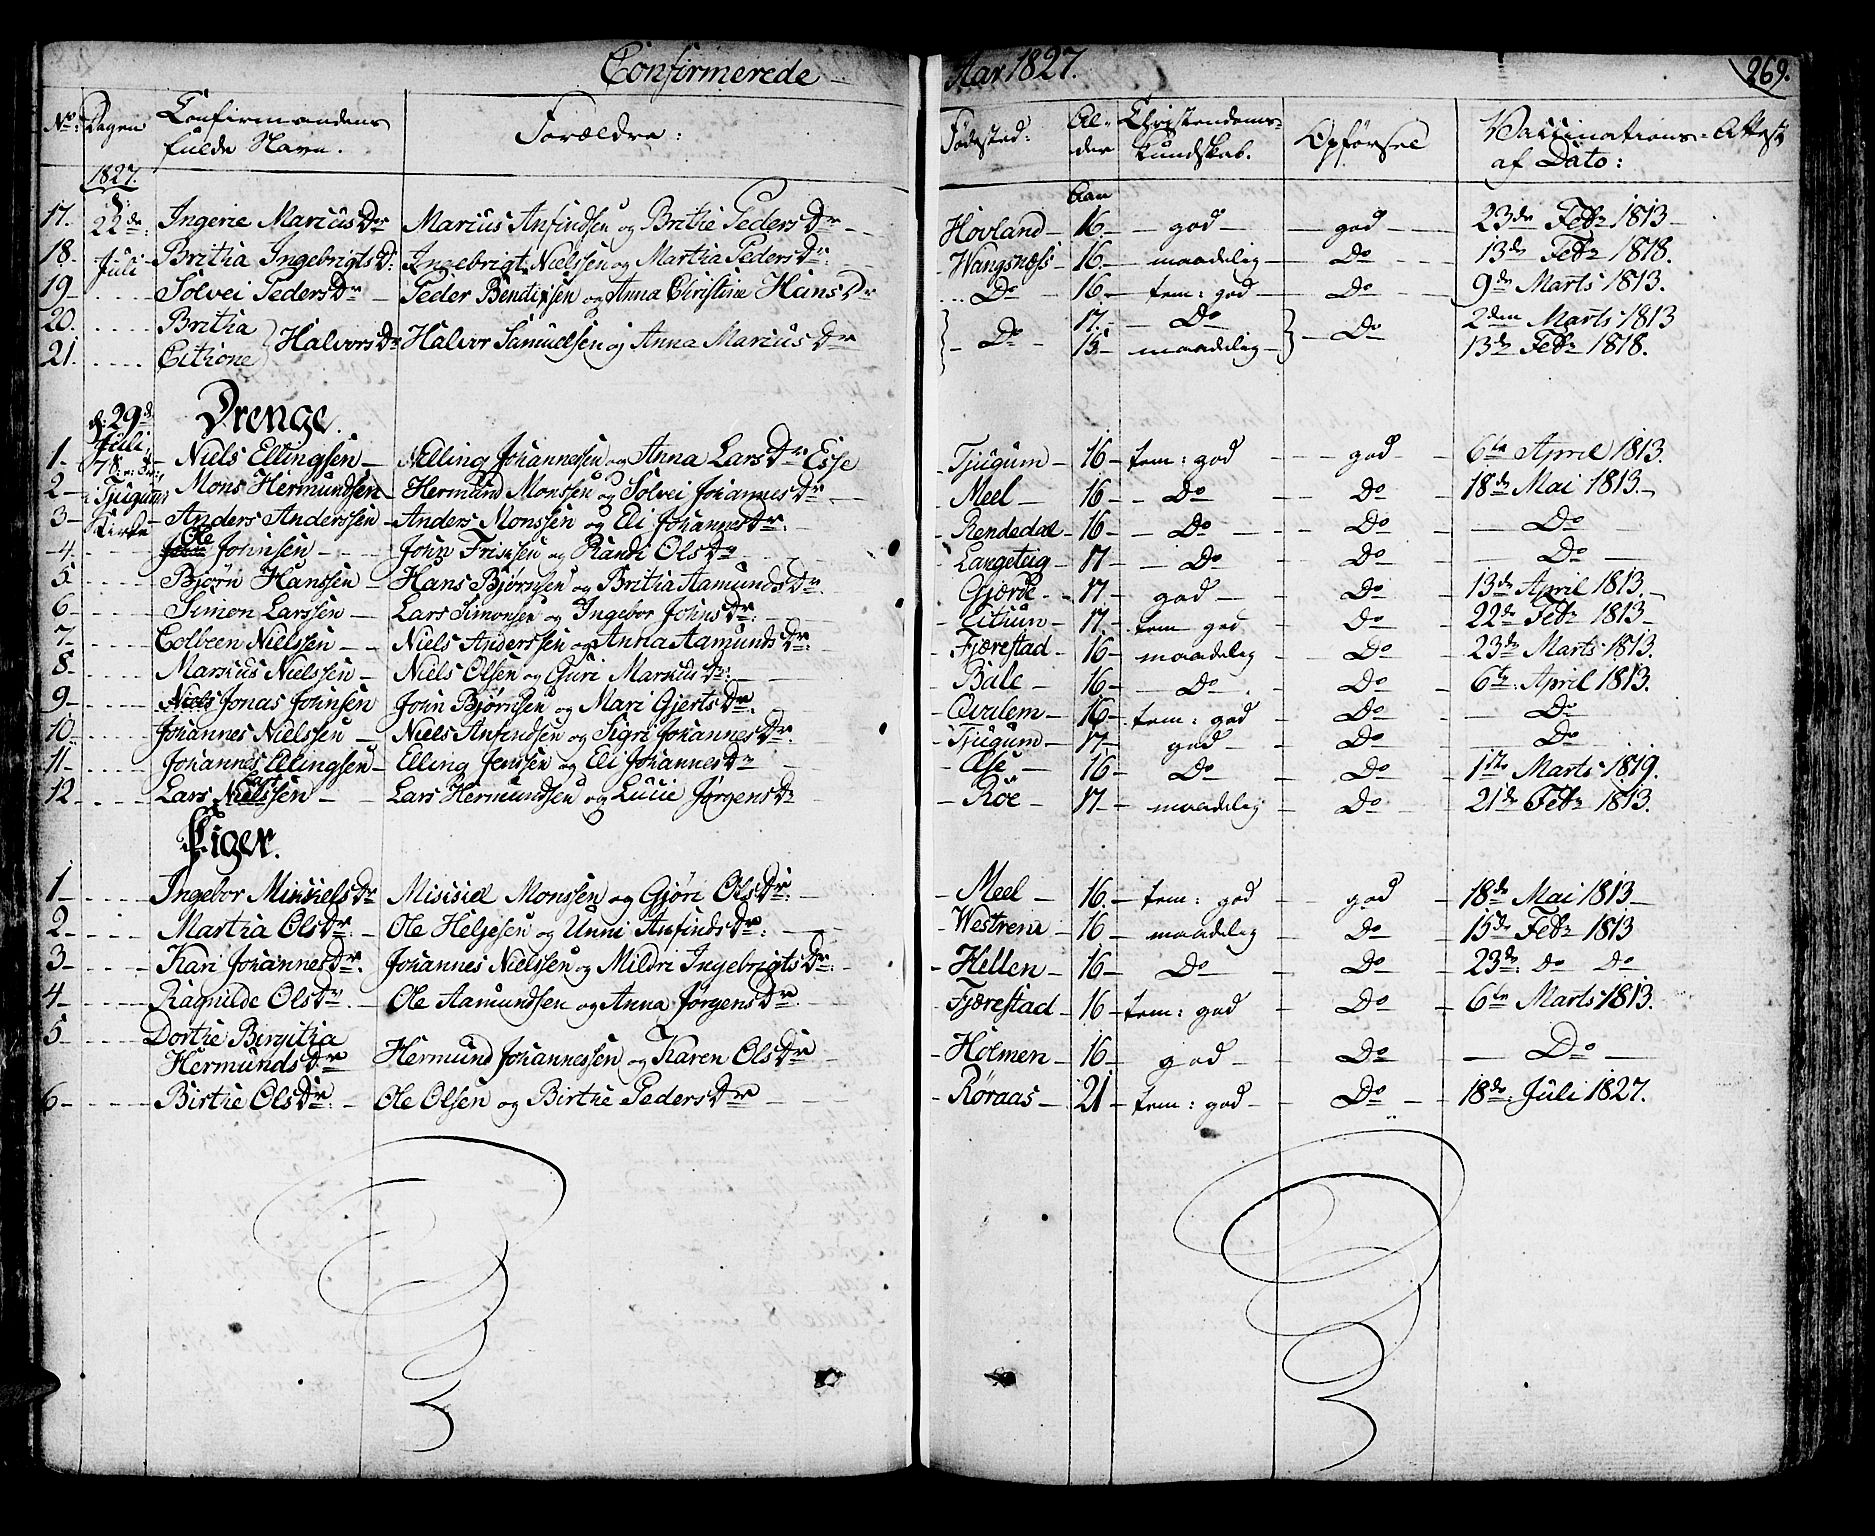 Confirmerede Aar 1827. 269.
No: Dagen Confirmandens fulde Navn. Forældre: Fødested: Alder Christendoms-kundskab. Opførsel Vaccinations-Attest af Dato:
1827. Aar
17. d: 22de Ingerie MarcusDr Marcus Anfindsen og Brithe PedersDr Hovland 16 god god 23de Febr 1813
18. Juli Brithia IngebrigtsD: Ingebrigt Nielssen og Martha PedersDr: Wangsness 16 maadelig Do 13de Febr 1818.
19 Solvei PedersDr Peder Bendixsen og Anna Christine HansDr Do 16 tem: god Do 9de Marts 1813.
20. Brithia HalvorsDr Halvor Samuelsen og Anna MarcusDr Do 17. Do Do 2den Marts 1813
21. Citione 15 maadelig 13de Febr 1818.
d: 29de Drenge.
Juli
1 Niels Ellingsen Nelling Johannessen og Anna LarsDr Esse Tjugum 16 tem: god god 6te April 1813.
2 Tjugum Mons Hermundsen Hermund Monssen og Solvei JohannesDr Meel 16 Do Do 18de Mai 1813
3 Kirke Anders Anderssen Anders Monssen og Eli JohannesDr: Rendedal 16 Do Do Do
4. Ole Johnsen John Friksen og Randi OlsDr Langeteig 17 Do Do Do
5 Bjørn Hanssen Hans Bjørnsen og Brithia AamundsDr Gjerde 17 god Do 13de April 1813.
6 Simon Larssen Lars Simonsen og Ingebor JohnsDr: Eitrun 17 tem god Do 22de Febr 1813
7 Colbeen Nielssen Niels Anderssen og Anna AamundsDr: Fjærestad 16 maadelig Do 23de Marts 1813.
8 Marcus Nielssen Niels Olsen og Guri MarkusDr: Bale 16 Do Do 6te April 1813.
9 Niels Jonas Johnsen John Bjørnsen og Mari GjertsDr: Qvalem 16 tem: god Do Do
10 Johannes Nielssen Niels Anfindsen og Sigri JohannesDr: Tjugum 17 god Do Do
11 Johannes Ellingsen Elling Jenssen og Eli JohannesDr Ase 16 Do Do 1ste Marts 1819.
12 Lars Nielssen Lars Hermundsen og Lucie JørgensDr Röe 17 maadelig Do 21de Febr 1813.
Piger.
1 Ingebor MikkelsDr Mikkel Monssen og Gjøri OlsDr: Meel 16. tem: god god 18de Mai 1813
2 Martha OlsDr: Ole Heljesen og Unni AnfindsDr: Westrem 16 maadelig Do 15de Febr 1813
3 Kari JohannesDr. Johannes Nielssen og Mildri IngebrigtsDr: Hellen 16 Do Do 23de: do Do
4 Ragnilde OlsDr Ole Aamundsen og Anna JørgensDr. Fjærestad 16 tem: god Do 6te Marts 1813.
5 Dorthe Birgitha
HermundsDr Hermund Johannessen og Karen OlsDr Holmen 16 god Do Do
6 Birthe OlsDr: Ole Olsen og Birthe PedersDr Røraas 21 tem: god Do 18de: Juli 1827.